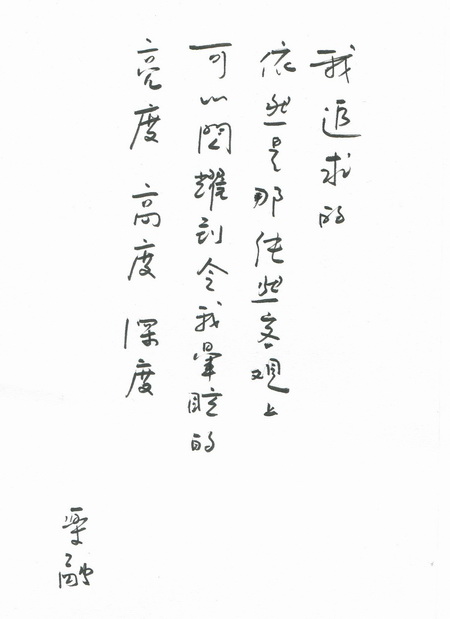 我追求的
依然是那纯然客观上
可以閃耀到令我暈眩的
亮度 高度 深度